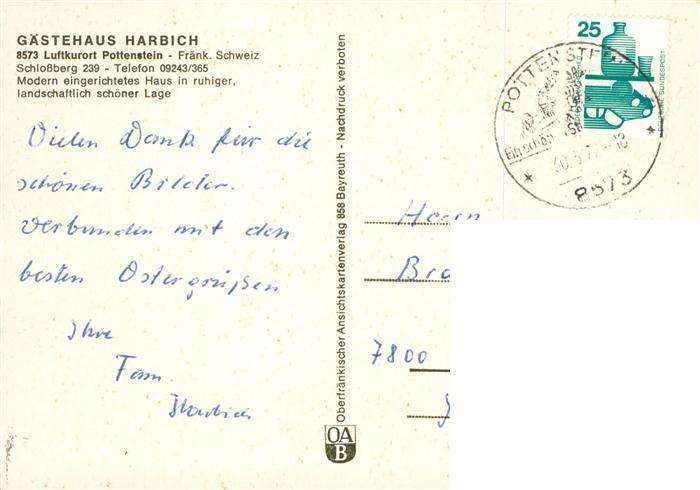 GÄSTEHAUS HARBICH
8573 Luftkurort Pottenstein - Fränk. Schweiz
Schloßberg 239 - Telefon 09243/365
Modern eingerichtetes Haus in ruhiger,
landschaftlich schöner Lage
Vielen Dank für die
schönen Bilder.
verbunden mit den
besten Ostergrüßen
Ihre
Fam.
Harbich
Oberfränkischer Ansichtskartenverlag 858 Bayreuth - Nachdruck verboten
OA
B
25
DEUTSCHE BUNDESPOST
POTTENSTE
8573
Herrn
7800